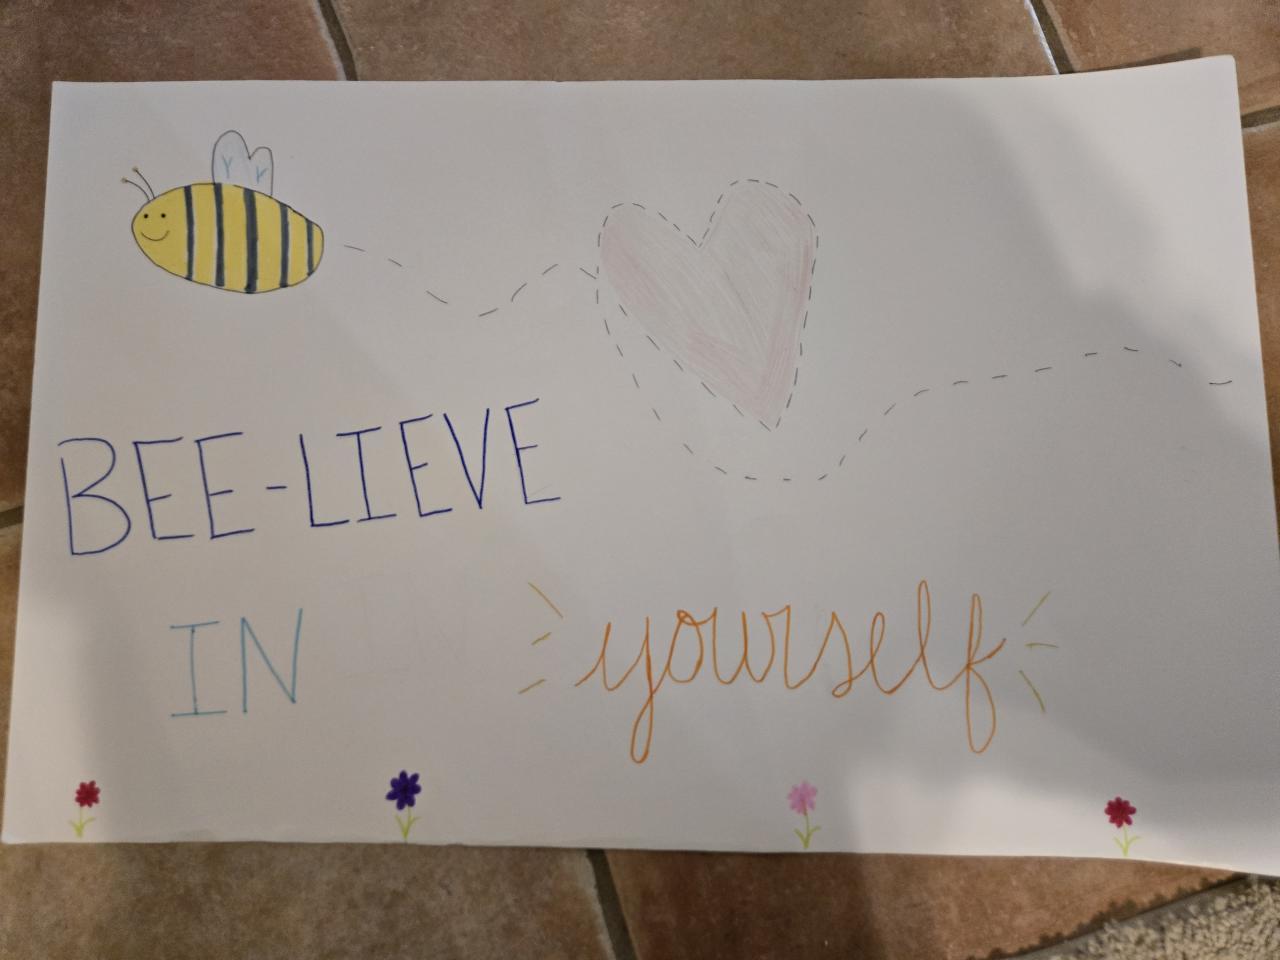 BEE-LIEVE
IN yourself